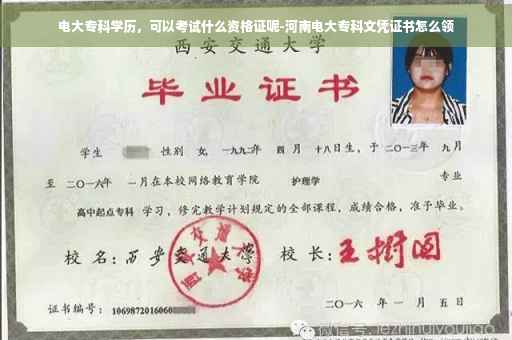 电大专科学历，可以考试什么资格证呢-河南电大专科文凭证书怎么领
西安交通大学
毕业证书
学生 性别 女，一九九二年 四月 十八日生，于二〇一三年 九月
至 二〇一六年 一月在本校网络教育学院 护理学 专业
高中起点专科 学习，修完教学计划规定的全部课程，成绩合格，准予毕业。
校名：西安交通大学 校长：王树国
西安交通大学
证书编号：1069872016060 二〇一六年一月五日
微信号:lezhinuyoujiao